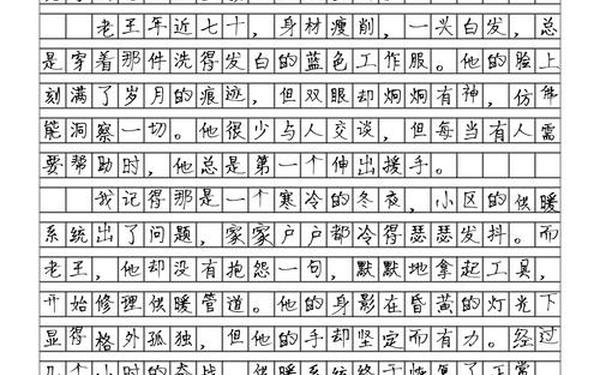 老王年近七十，身材瘦削，一头白发，总
是穿着那件洗得发白的蓝色工作服。他的脸上
刻满了岁月的痕迹，但双眼却炯炯有神，仿佛
能洞察一切。他很少与人交谈，但每当有人需
要帮助时，他总是第一个伸出援手。
我记得那是一个寒冷的冬夜，小区的供暖
系统出了问题，家家户户都冷得瑟瑟发抖。而
老王，他却没有抱怨一句，默默地拿起工具，
开始修理供暖管道。他的身影在昏黄的灯光下
显得格外孤独，但他的手却坚定而有力。经过
几个小时的奋战，供暖系统终于恢复了正常